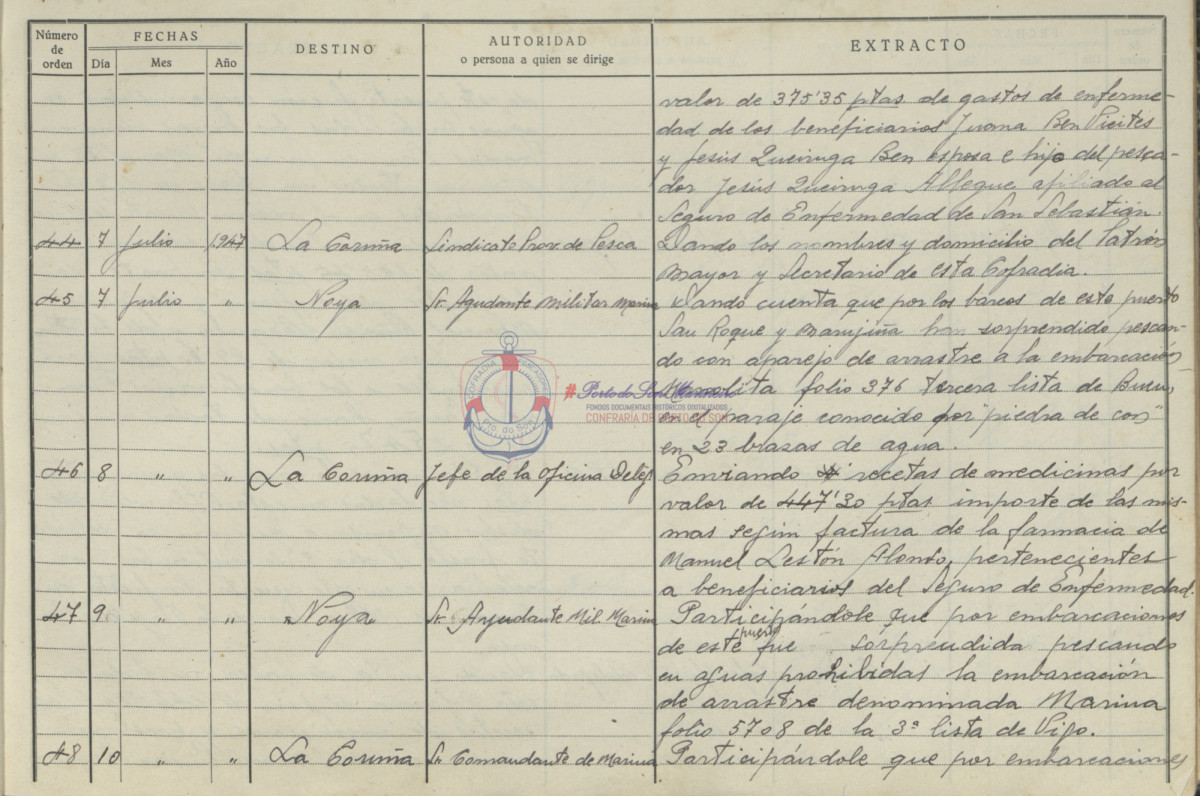 Número de orden
FECHAS
Día
Mes
Año
DESTINO
AUTORIDAD
o persona a quien se dirige
EXTRACTO
valor de 375'35 ptas. de gastos de enferme-
dad de los beneficiarios Juana Ben Vieites
y Jesús Queiruga Ben esposa e hijo del pesca-
dor Jesús Queiruga Allegue afiliado al
Seguro de Enfermedad de San Sebastián.
44 7 Julio 1.947 La Coruña Sindicato Prov. de Pesca Dando los nombres y domicilio del Patrón
Mayor y Secretario de esta Cofradia.
45 7 Julio " Noya Sr. Ayudante Militar Marina Dando cuenta que por los barcos de este puerto
San Roque y Marujiña han sorprendido pescan-
do con aparejo de arrastre a la embarcación
folio 376 tercera lista de Bueu,
en el paraje conocido por "piedra de con"
en 23 brazas de agua.
46 8 " " La Coruña Jefe de la Oficina Deleg. Enviando recetas de medicinas por
valor de 447'30 ptas importe de las mis-
mas segun factura de la farmacia de
Manuel Lestón Alonso, pertenecientes
a beneficiarios del Seguro de Enfermedad.
47 9 " " "Noya" Sr. Ayudante Mil. Marina Participándole que por embarcaciones
de este puerto fue sorprendida pescando
en aguas prohibidas la embarcación
de arrastre denominada Marina
folio 5708 de la 3ª lista de Vigo.
48 10 " " La Coruña Sr. Comandante de Marina Participándole que por embarcaciones
COFRADIA PESCADORES
Pto. do Son
#Porto do Son Mariñeiro
FONDOS DOCUMENTAIS HISTÓRICOS DIXITALIZADOS
CONFRARÍA DE PORTO DO SON